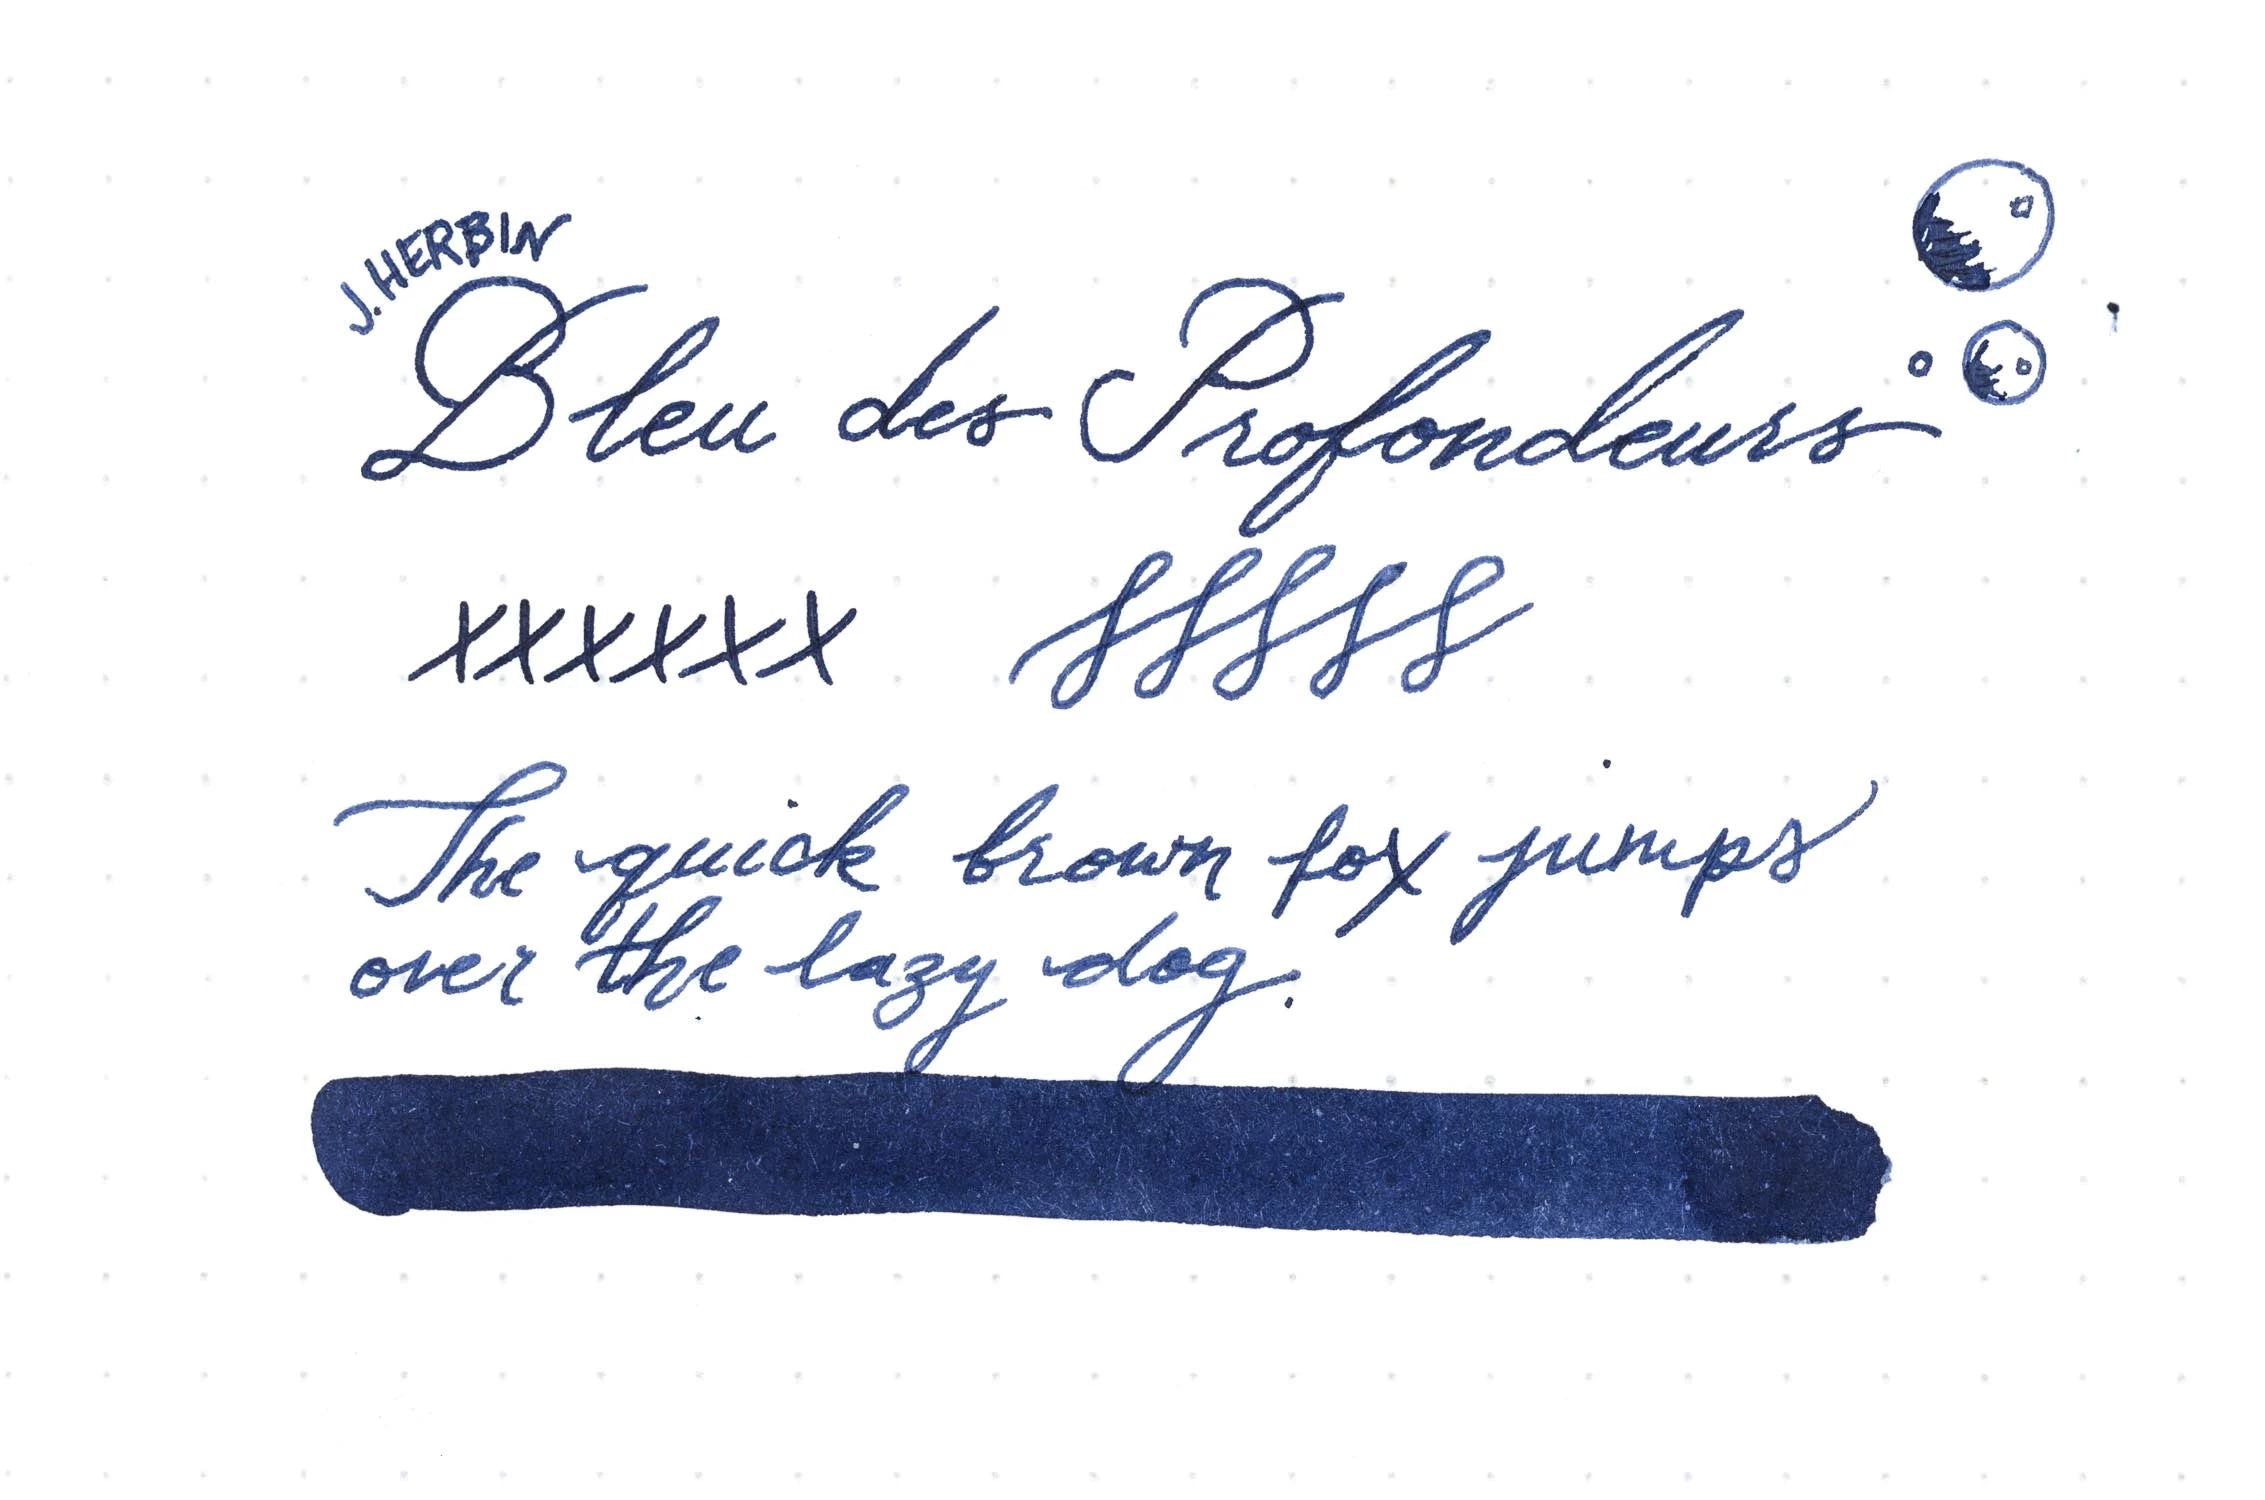 J. HERBIN
Bleu des Profondeurs
xxxxxx sssss
The quick brown fox jumps
over the lazy dog.